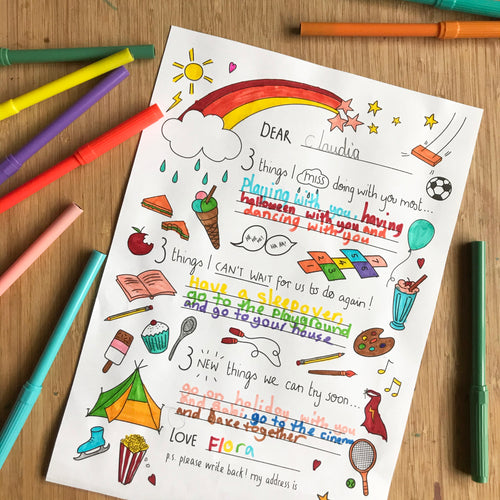 DEAR Claudia
3 things I miss doing with you most...
Playing with you, having
halloween with you and
dancing with you
HA HA! HA HA!
3 things I CAN'T WAIT for us to do again!
Have a sleepover,
go to the playground
and go to your house
3 NEW things we can try soon...
go on holiday with you
go to the cinema
and bake together
LOVE Flora
p.s. please write back! my address is